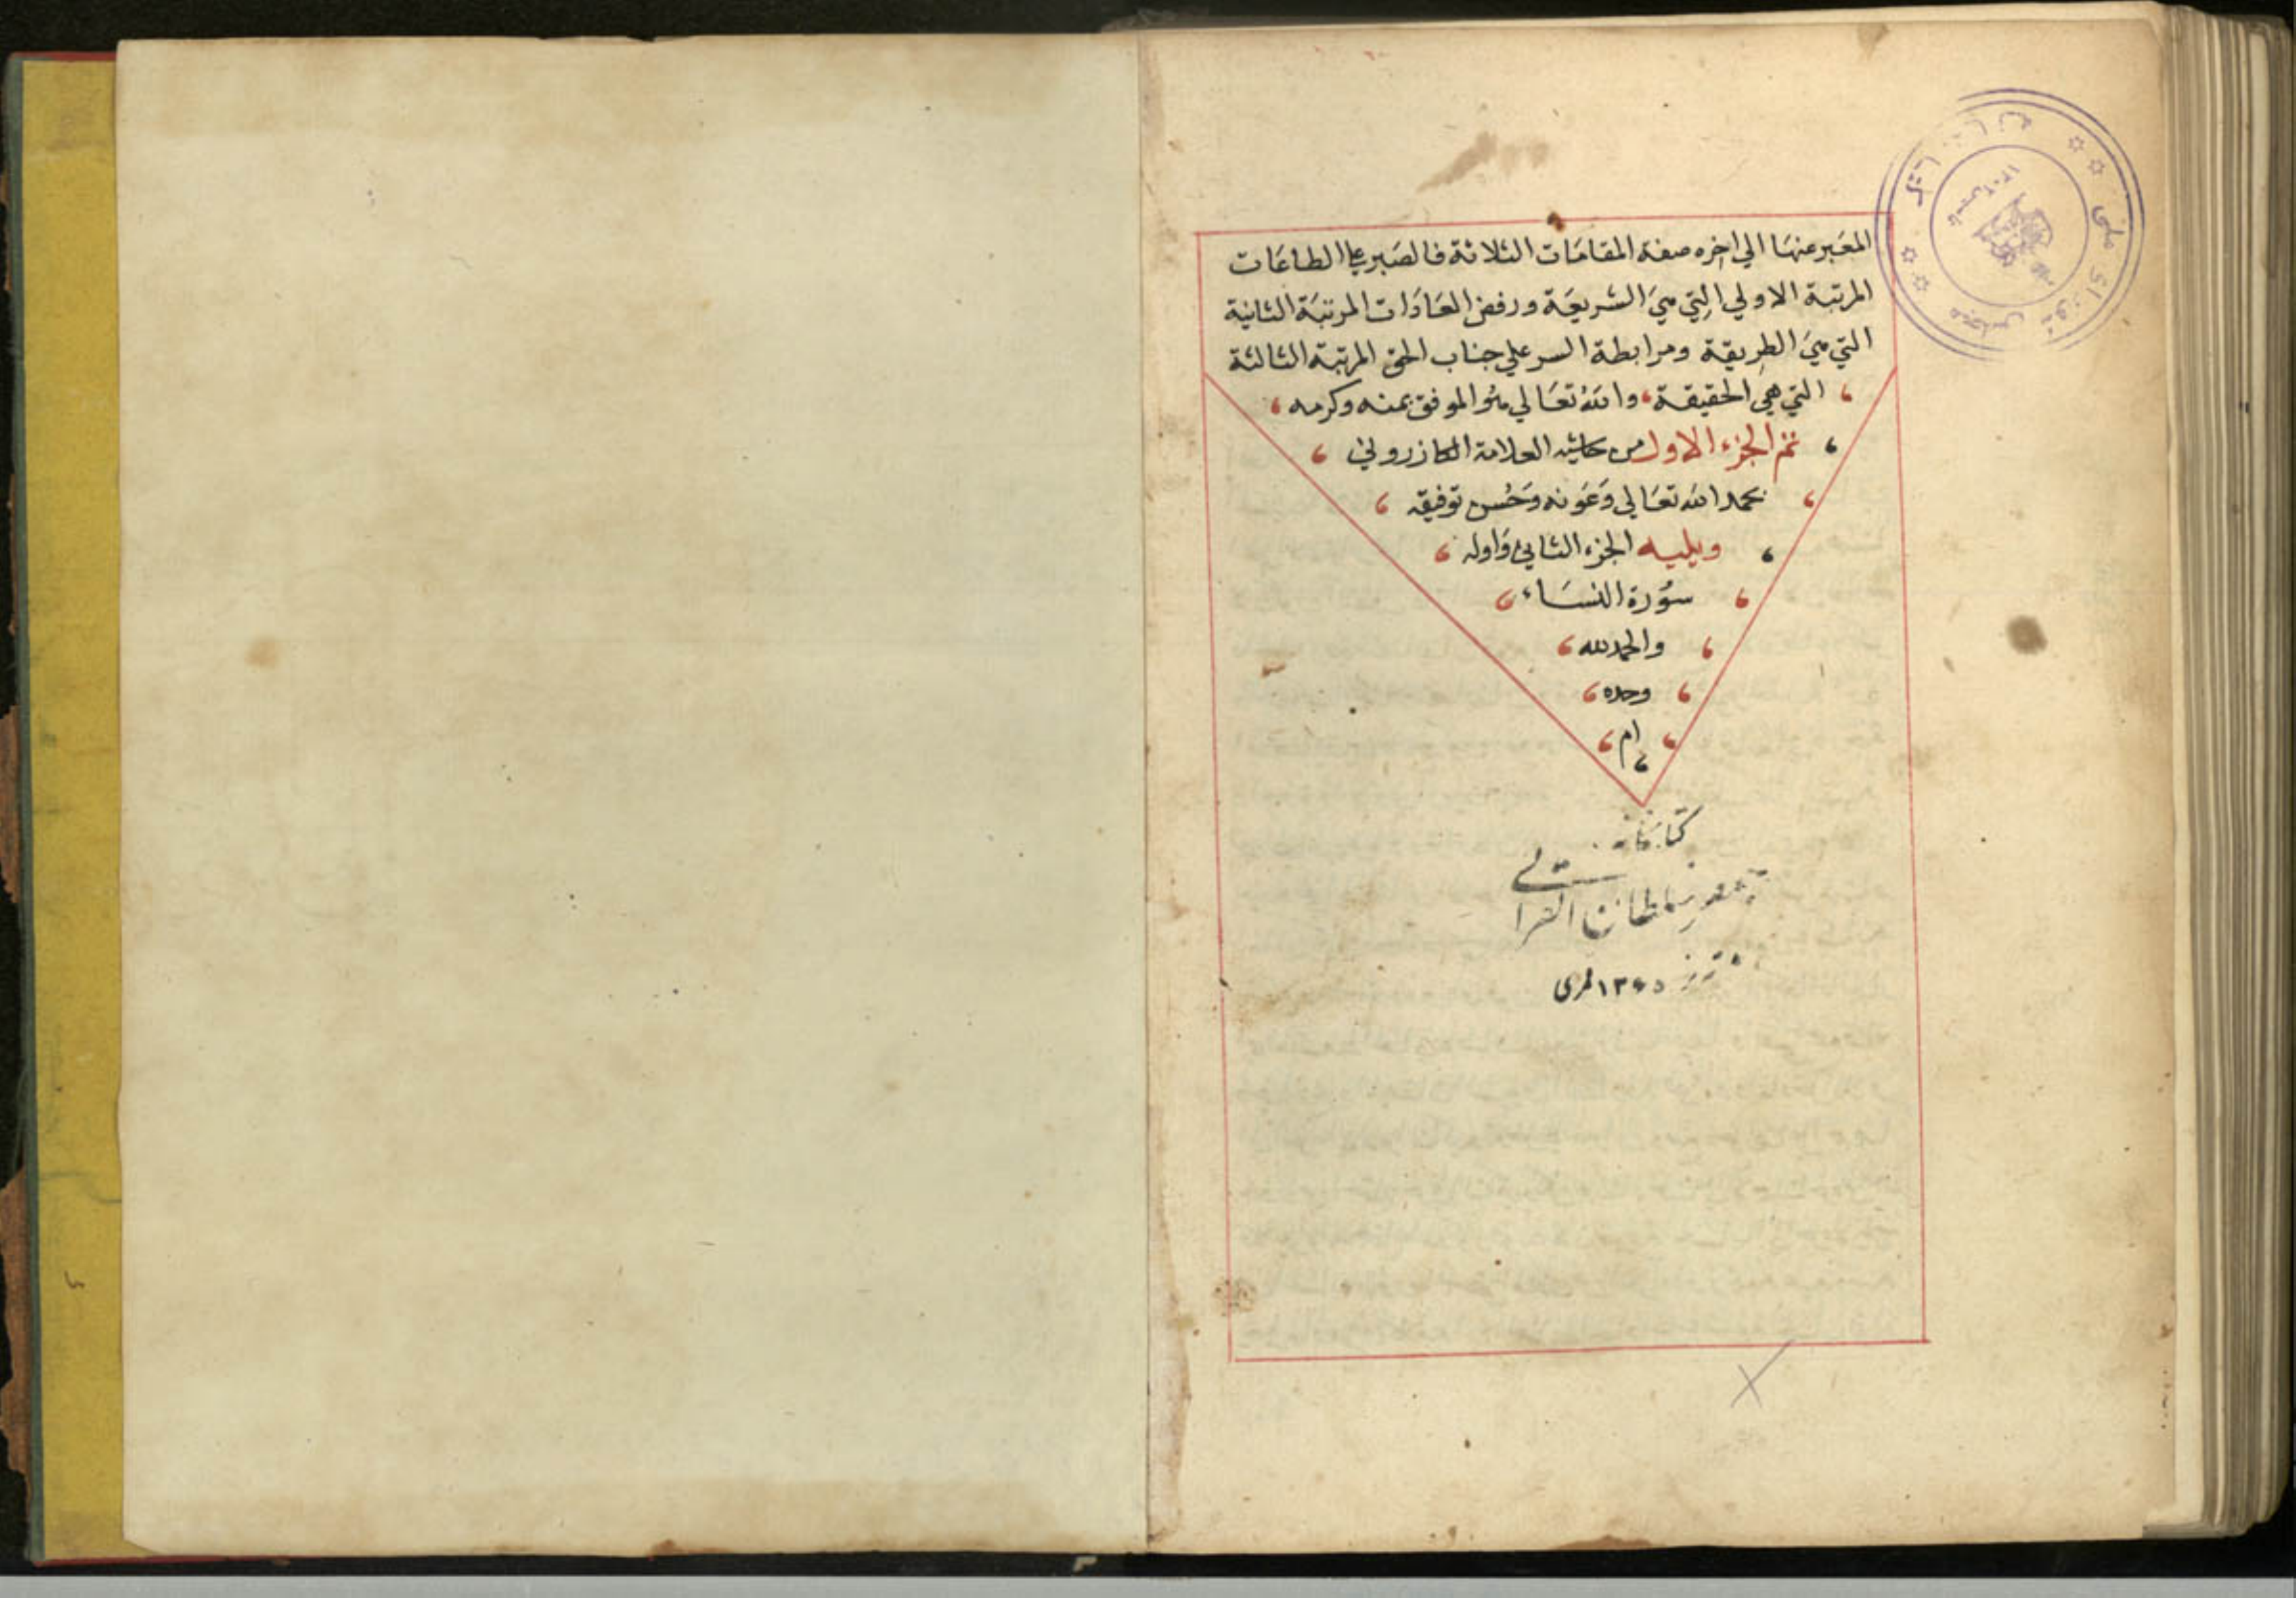 المعَبر عنهَا الي اخره صفة المقامَات الثلاثة فالصَبر علي الطاعَات
المرتبة الاولي التِي هيَ الشريعَة ورفض العَادَات المرتبَة الثانية
التي هيَ الطريقة ومرابطة السر علي جناب الحق المرتبة الثالثة
التي هي الحقيقة، والله تعَالي هُو الموفق بمنه وكرمه
تم الجزء الاول من حاشية العلامة الكازروني
بحمد الله تعَالي وَعَونه وَحُسن توفيقه
ويليه الجزء الثاني وَاوله
سُورة النسَاء
والحمد لله
وحده
ام
كتابخانه
جعفر سلطان القرائى
تبريز ١٣٤٥ قمرى
مجلس شوراى ملى